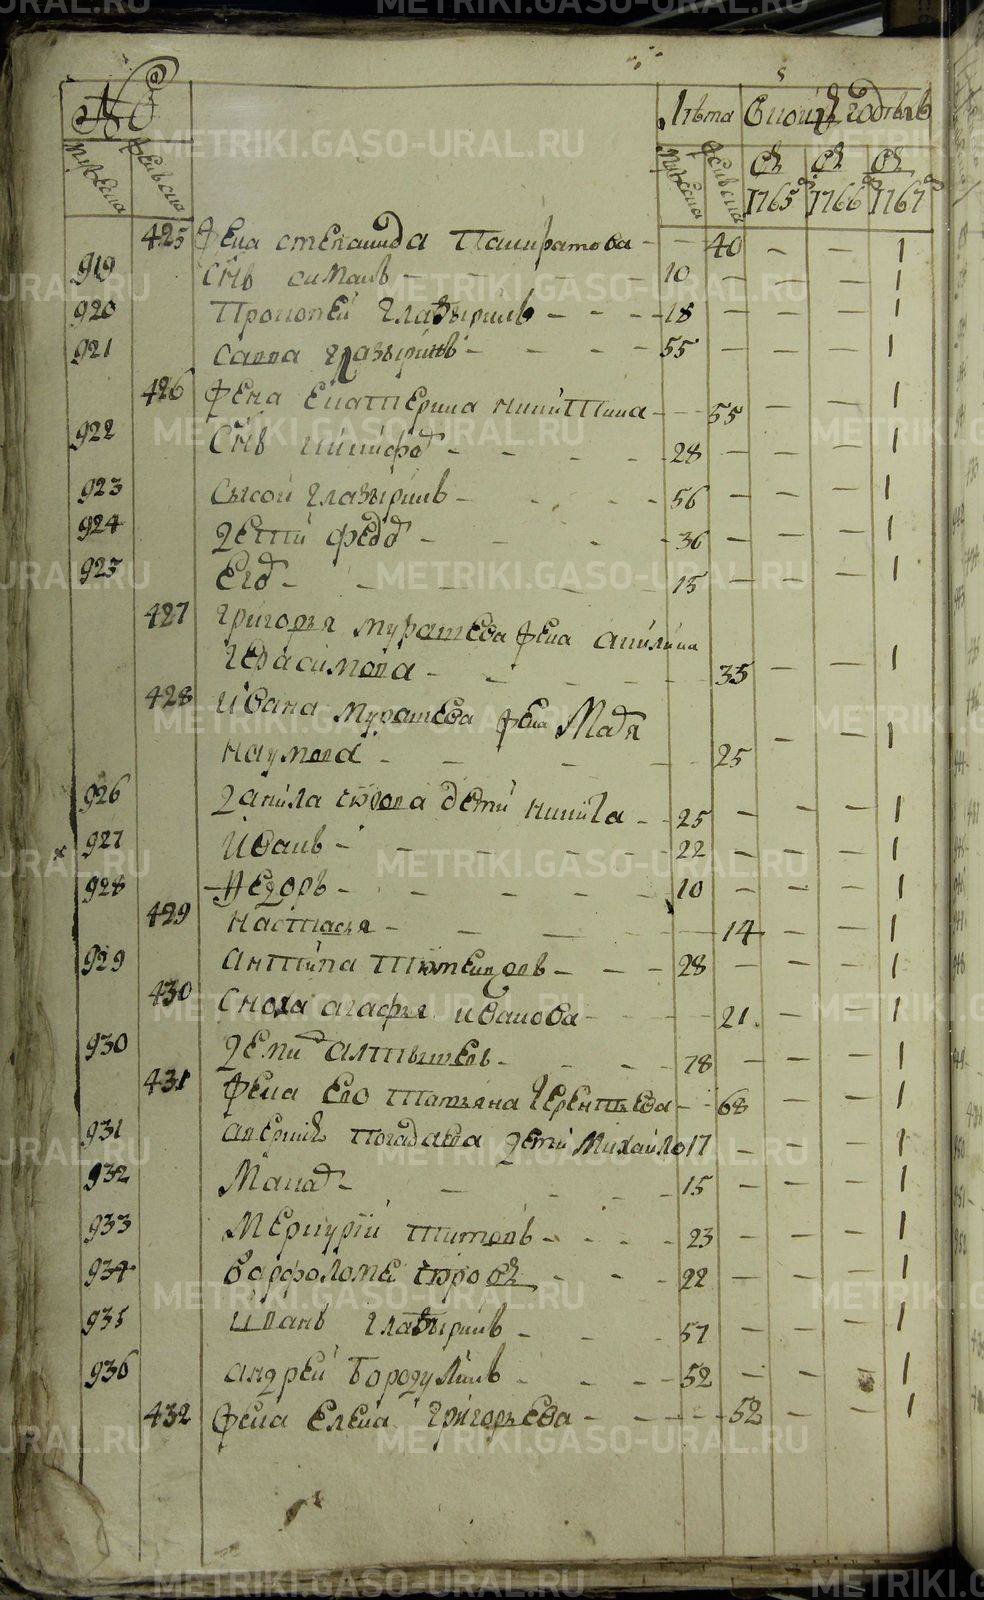 №
Лѣта
Скоихъ годовъ
мужеска
женска
мужеска
женска
Съ 1765го
Съ 1766го
Съ 1767го
425 жена степанида Панкратова - - 40 - - 1
919 Снъ симанъ - - 10 - - 1
920 Прокопеи глазыринъ - - - 18 - - 1
921 Савва глазыринъ - - - 55 - - 1
426 жена Екатерина никитина - - 55 - - 1
922 Снъ никифо - - - 28 - - 1
923 Сысои глазыринъ - - - 56 - - 1
924 Дети федо - - - 36 - - 1
925 Его - - - 15 - - 1
427 григорья муратева жена акилина
герасимова - - - 35 - - 1
428 ивана муратева жена Мадя
наумова - - - 25 - - 1
926 данила сюрова дети никита - - 25 - - 1
927 Иванъ - - - 22 - - 1
928 Федоръ - - - 10 - - 1
429 настасья - - - 14 - - 1
929 антипа - - - 28 - - 1
430 сноха агафья иванова - - 21 - - 1
930 Деми алтышевъ - - - 78 - - 1
431 жена Ево татьяна терентьева - - 68 - - 1
931 аверкия погадаева дети михаило 17 - - 1
932 Мака - - - 15 - - 1
933 Меркурии титовъ - - - 23 - - 1
934 варфоломе сюровъ - - - 22 - - 1
935 иванъ глазыринъ - - - 57 - - 1
936 андреи бородулинъ - - - 52 - - 1
432 жена Елена григорьева - - - 52 - - 1
METRIKI.GASO-URAL.RU